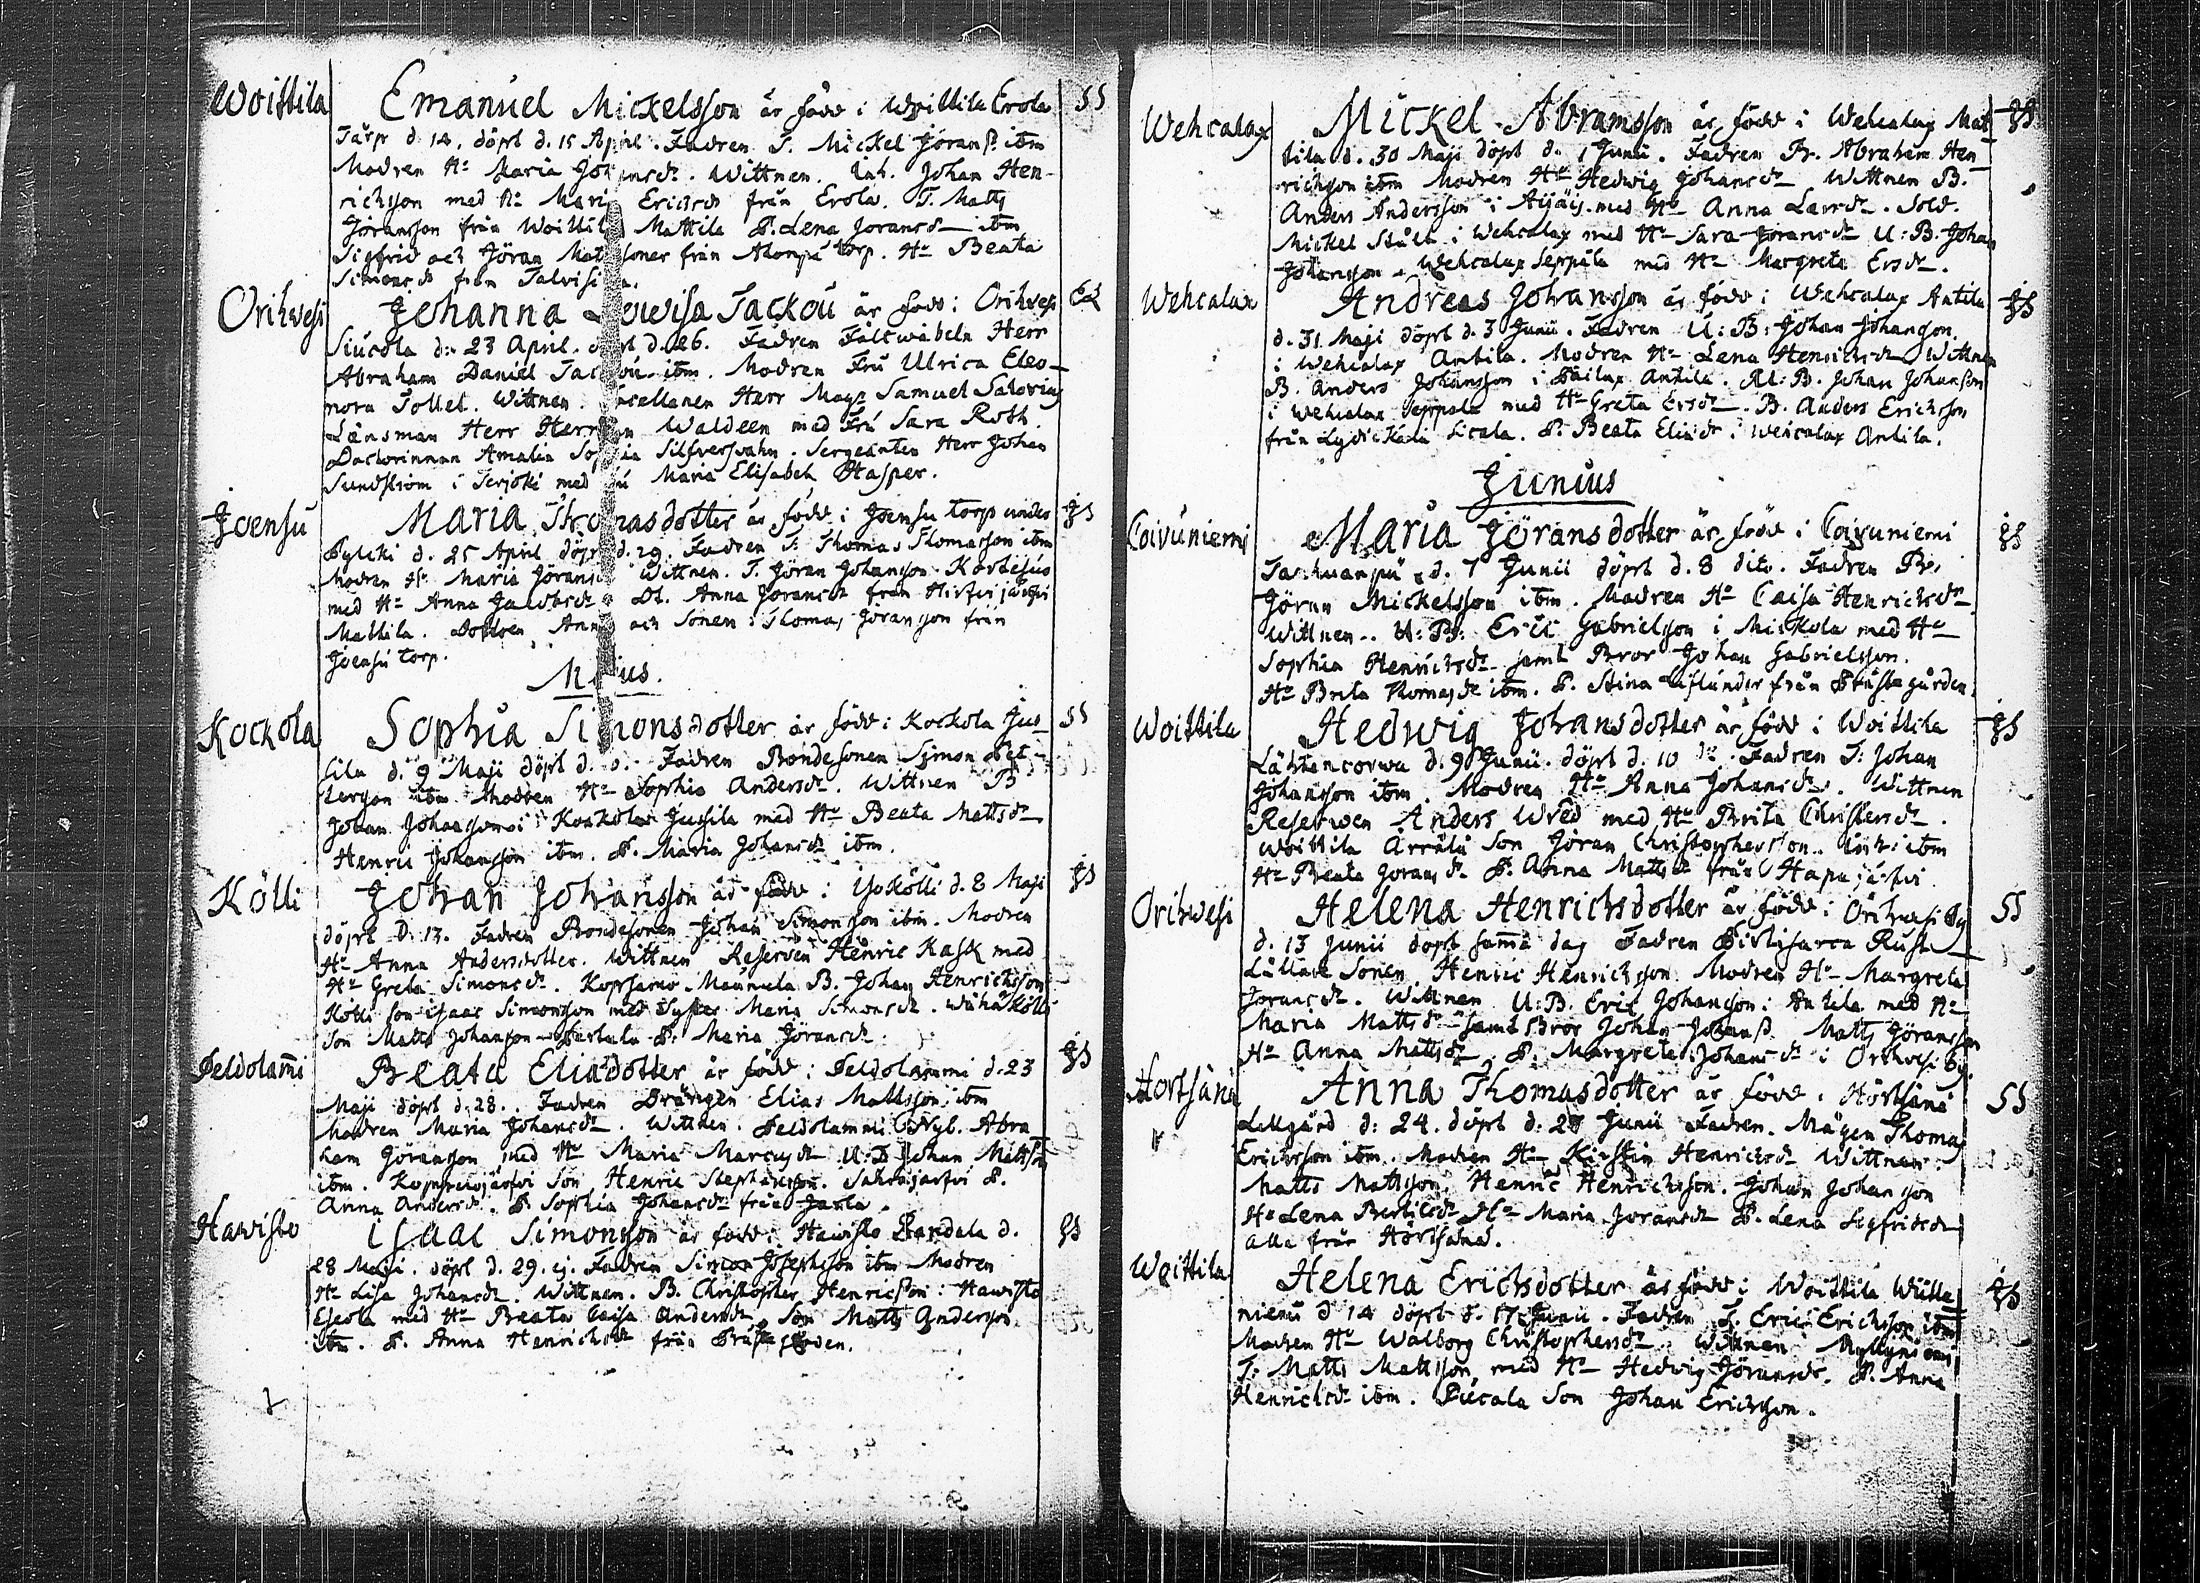 Woittila
Emanuel Mickelsson är född i Woittila Erola
Tårp d. 14. döpt d. 15 April. Fadren T. Mickel Jöranss. ibm
Modren Hu Maria Johansdr. Wittnen. Inh. Johan Hen-
richsson med Hu Maria Ericsdr från Erola. T. Matts
Jöransson från Woittila Mattila P. Lena Joransdr ibm
Sigfrid och Jöran Matssoner från torp. Hu Beata
Simonsdr från
Orihwesi
Johanna Lowisa Tackou är född i Orihwesi
Siucola d. 23 April. döpt d. 26. Fadren Fältwäbeln Herr
Abraham Daniel Tackou ibm. Modren Fru Ulrica Eleo-
nora Tollet. Wittnen. Herr Mag. Samuel Salovius
Länsman Herr Herman Waldeen med Fru Sara Roth.
Doctorinnan Amalia Sophia Silfversvahn. Sergeanten Herr Johan
Sundström i Terjoki med Fru Maria Elisabeth Hasper.
Joensu
Maria Thomasdotter är född i Joensu torp under
d. 25 April döpt d. 29. Fadren T. Thomas Thomasson ibm
Modren Hu Maria Jöransdr Wittnen. T. Jöran Johansson
med Hu Anna Jacobsdr Dt. Anna Joransdr från Hirfvijärfvi
Mattila. Dottren Anna och Sonen Thomas Jöransson från
Joensu torp.
Majus.
Kockola
Sophia Simonsdotter är född i Kockola Jus-
sila d. 9 Maji döpt d. Fadren Bondesonen Simon Pet-
tersson ibm Modren Hu Sophia Andersdr. Wittnen B
Johan Johansson i Kockola Jussila med Hu Beata Mattsdr
Henric Johansson ibm. P. Maria Johansdr ibm.
Kölli
Johan Johansson är född i isoKölli d. 8 Maji
döpt D. 13. Fadren Bondesonen Johan Simonsson ibm. Modren
Hu Anna Andersdotter. Wittnen Reserven Henric Kask med
Hu Greta Simonsdr. Mannula B. Johan Henrichsson
Kölli son isaac Simonsson med Syster Maria Simonsdr. WähäKölli
Son Matts Johansson P. Maria Jöransdr.
Peldolammi
Beata Eliædotter är född i Peldolammi d. 23
Maji döpt d. 28. Fadren Drängen Elias Mattsson ibm
Modren Maria Johansdr. Wittnen. Peldolammi Nyb. Abra
ham Göransson med Hu Maria Marcusdr U:B Johan Mattson
ibm. Son Henric Stephansson. P.
Anna Andersdr. P. Sophia Johansdr från
Hawisto
isaac Simonsson är född i Hawisto d.
28 Maji. döpt d. 29. ej. Fadren Simon Josephsson ibm Modren
Hu Lisa Johansdr. Wittnen. B. Christopher Henricsson i Hawisto
Eserla med Hu Beata Caisa Andersdr, Son Matts Andersson
ibm. P. Anna Henrichsdr från
Wehcalax
Mickel Abramsson är född i Wehcalax Mat
tila d. 30 Maji döpt d. 1 Junii. Fadren Br. Abraham Hen
richsson ibm Modren Hu Hedwig Johansdr Wittnen B.
Anders Andersson i Äijälä med Hu Anna Larsdr. Sold.
Mickel Stålt i Wehcalax med Hu Sara Joransdr U:B. Johan
Johansson Wehcalax Seppälä med Hu Margreta Ersdr.
Wehcalax
Andreas Johansson är född i Wehcalax Antila
d. 31. Maji döpt d. 3 Junii. Fadren U:B: Johan Johansson
i Wehcalax Antila. Modren Hu Lena Henrichsdr Wittnen
B. Anders Johansson i Antila. B. Johan Johanson
i Wehcalax Seppala med Hu Greta Ersdr. B. Anders Ericksson
från P. Beata Eliædr i Wehcalax Antila.
Junius
Coivuniemi
Maria Jöransdotter är född i Coivuniemi
d. 7 Junii döpt d. 8 dito. Fadren Br.
Jöran Mickelsson ibm. Modren Hu Caisa Henrichsdr
Wittnen. U:B: Eric Gabrielsson i Mickola med Hu
Sophia Henrichsdr samt Bror Johan Gabrielsson.
Hu Brita Thomasdr ibm. P. Stina från Prästegården.
Woittila
Hedwig Johansdotter är född i Woittila
Lähtencorwa d. 9 Junii. döpt d. 10 Fadren T: Johan
Johansson ibm. Modren Hu Anna Johansdr. Wittnen
Reserwen Anders Wred med Hu Brita Christersdr.
Woittila Arrälä Son Jöran Christophersson. ibm
Hu Beata Joransdr. P. Anna Mattsdr från Hapajärfvi.
Orihwesi
Helena Henrichsdotter är född i Orihwesi By
d. 13 Junii döpt samma dag Fadren Rust
hållare Sonen Henric Henrichsson Modren Hu Margreta
Joransdr. Wittnen U:B. Eric Johansson i Antila med Hu
Maria Mattsdr samt Bror Johan Johanss. Matts Jöransson
Hu Anna Mattsdr. P. Margreta Johansdr i Orihwesi By.
Hörtsänä
Anna Thomasdotter är född i Hörtsänä
Lillgård d. 24. döpt d. 27 Junii Fadren. Mågen Thomas
Erichsson ibm. Modren Hu Kirstin Henrichsdr Wittnen.
Matts Mattsson. Henric Henrichsson. Johan Johansson
Hu Lena Bertilsdr Hu Maria Joransdr P. Lena Sigfridsdr
alla från Hörtsänä.
Woittila
Helena Erichsdotter är född i Woittila
niemi d 14 döpt d. 17 Junii. Fadren T. Eric Erichsson ibm
Modren Hu Walborg Christophersdr. Wittnen Myllyniemi
T. Matts Mattsson med Hu Hedvig Jöransdr. P. Anna
Henrichsdr ibm. Son Johan Erichsson.